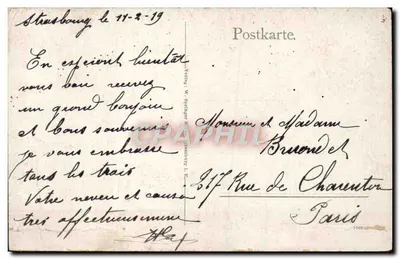 Strasbourg le 11-2-19
Postkarte.
En espérant bientôt
vous voir recevez
un grand bonjour
et bons souvenirs
je vous embrasse
tous les trois
Votre neveu et
très affectueusement
Monsieur et Madame
217 Rue de Charenton
Paris
CPAPHIL